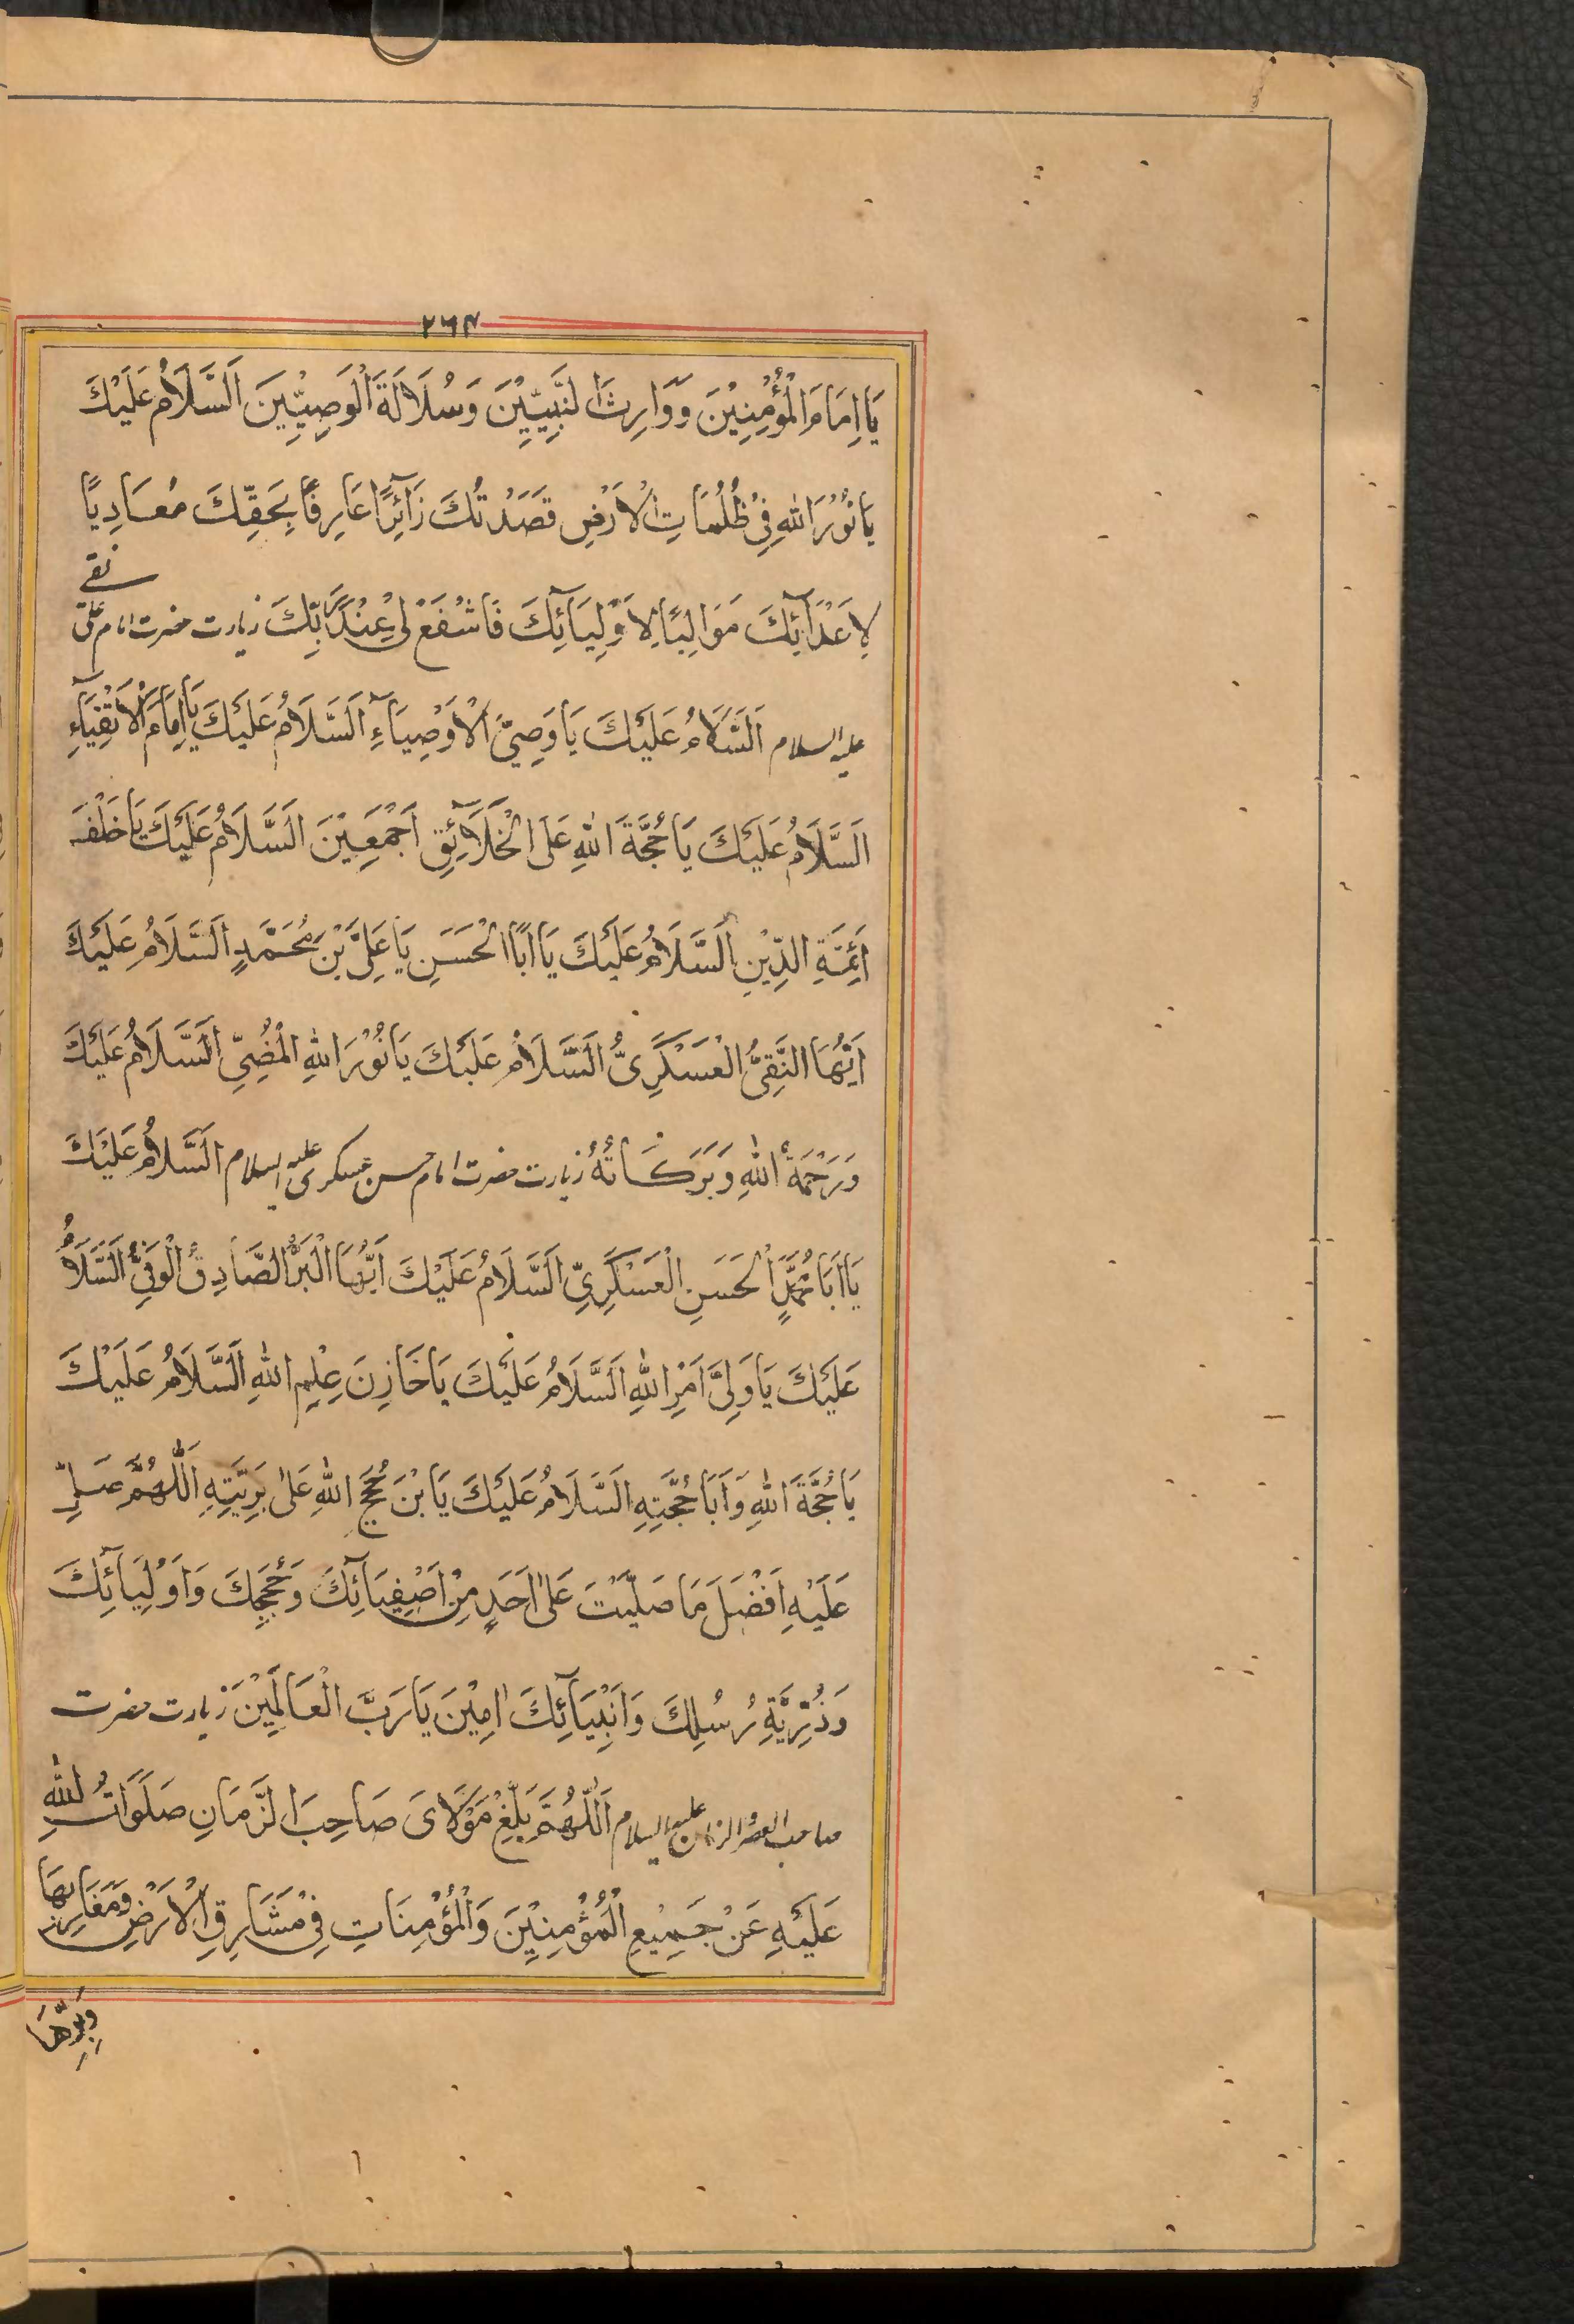 ٢٦٣
يَا اِمَامَ الْمُؤْمِنِيْنَ وَوَارِثَ النَّبِيِّيْنَ وَسُلَالَةَ الْوَصِيِّيْنَ اَلسَّلَامُ عَلَيْكَ
يَا نُوْرَ اللهِ فِيْ ظُلُمَاتِ الْاَرْضِ قَصَدْتُكَ زَائِرًا عَارِفًا بِحَقِّكَ مُعَادِيًا
لِاَعْدَآئِكَ مَوَالِيًا لِاَوْلِيَآئِكَ فَاشْفَعْ لِيْ عِنْدَ رَبِّكَ زيارت حضرت امام علی نقی
علیہ السلام اَلسَّلَامُ عَلَيْكَ يَا وَصِيَّ الْاَوْصِيَآءِ اَلسَّلَامُ عَلَيْكَ يَا اِمَامَ الْاَتْقِيَآءِ
اَلسَّلَامُ عَلَيْكَ يَا حُجَّةَ اللهِ عَلَى الْخَلَآئِقِ اَجْمَعِيْنَ اَلسَّلَامُ عَلَيْكَ يَا خَلْفَ
اَئِمَّةِ الدِّيْنِ اَلسَّلَامُ عَلَيْكَ يَا اَبَا الْحَسَنِ يَا عَلِيَّ بْنَ مُحَمَّدٍ اَلسَّلَامُ عَلَيْكَ
اَيُّهَا النَّقِيُّ الْعَسْكَرِيُّ اَلسَّلَامُ عَلَيْكَ يَا نُوْرَ اللهِ الْمُضِيِّ اَلسَّلَامُ عَلَيْكَ
وَرَحْمَةُ اللهِ وَبَرَكَاتُهُ زيارت حضرت امام حسن عسكری علیہ السلام اَلسَّلَامُ عَلَيْكَ
يَا اَبَا مُحَمَّدٍ الْحَسَنِ الْعَسْكَرِيِّ اَلسَّلَامُ عَلَيْكَ اَيُّهَا الْبَرُّ الصَّادِقُ الْوَفِيُّ اَلسَّلَامُ
عَلَيْكَ يَا وَلِيَّ اَمْرِ اللهِ اَلسَّلَامُ عَلَيْكَ يَا خَازِنَ عِلْمِ اللهِ اَلسَّلَامُ عَلَيْكَ
يَا حُجَّةَ اللهِ وَاَبَا حُجَّتِهِ اَلسَّلَامُ عَلَيْكَ يَا بْنَ حُجَجِ اللهِ عَلىٰ بَرِيَّتِهِ اَللّٰهُمَّ صَلِّ
عَلَيْهِ اَفْضَلَ مَا صَلَّيْتَ عَلىٰ اَحَدٍ مِنْ اَصْفِيَآئِكَ وَحُجَجِكَ وَاَوْلِيَآئِكَ
وَذُرِّيَّةِ رُسُلِكَ وَاَنْبِيَآئِكَ اٰمِيْنَ يَا رَبَّ الْعَالَمِيْنَ زيارت حضرت
صاحب العصر والزمان علیہ السلام اَللّٰهُمَّ بَلِّغْ مَوْلَايَ صَاحِبَ الزَّمَانِ صَلَوَاتُ اللهِ
عَلَيْهِ عَنْ جَمِيْعِ الْمُؤْمِنِيْنَ وَالْمُؤْمِنَاتِ فِيْ مَشَارِقِ الْاَرْضِ وَمَغَارِبِهَا
وَبَرِّهَا